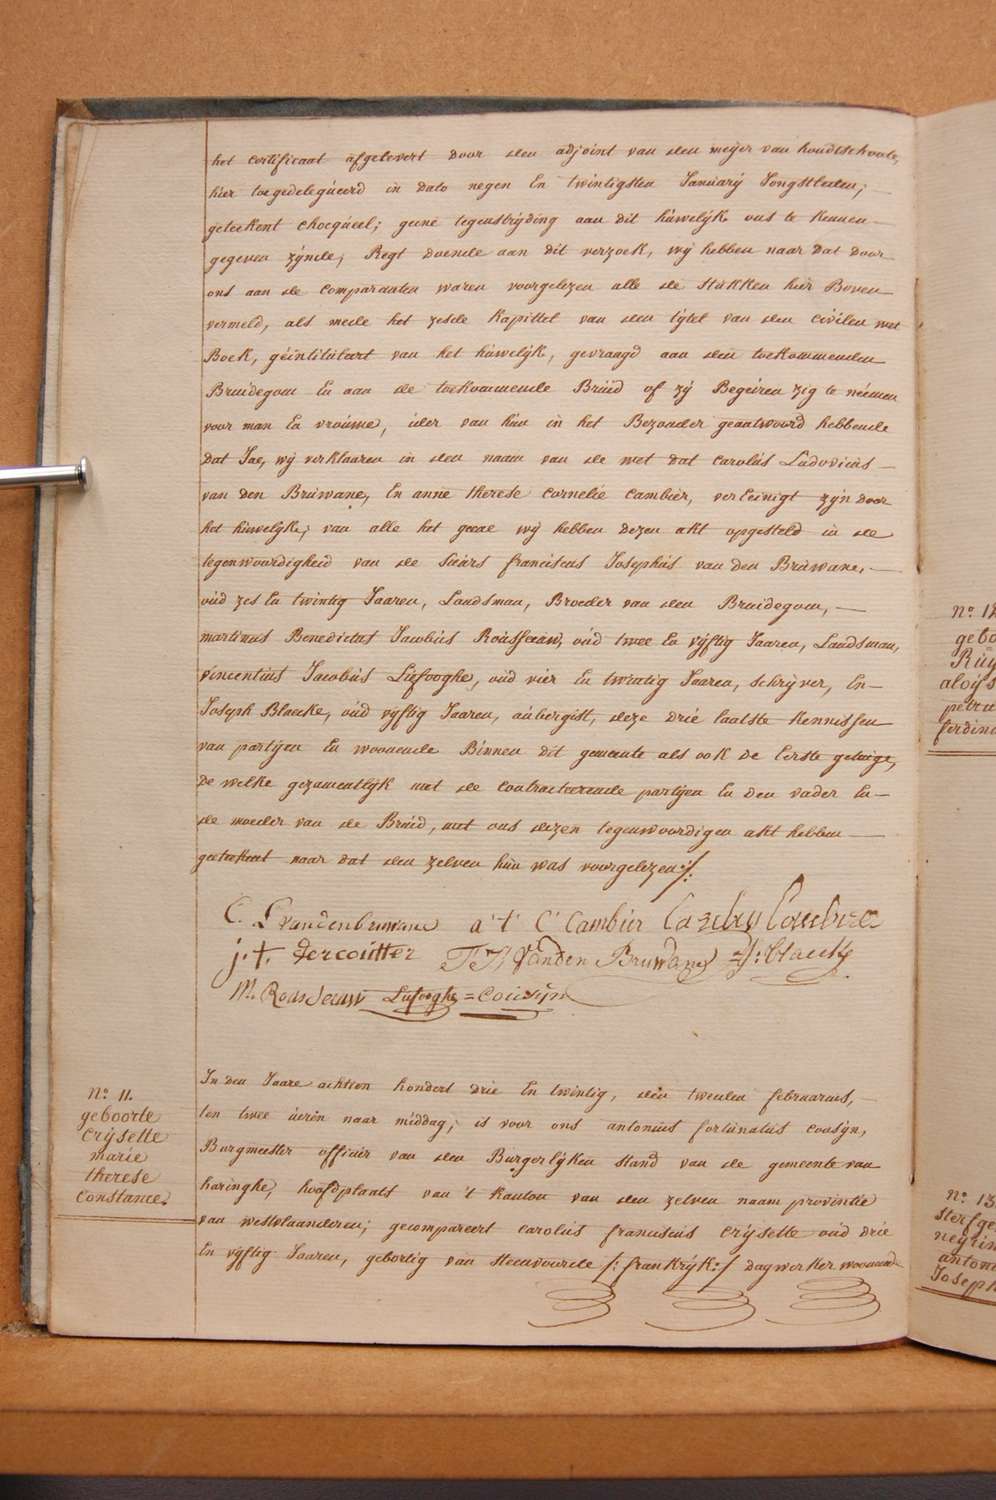 het certificaat afgelevert door den adjoint van den meijer van houdtschoote,
hier toegedelegueerd in dato negen En twintigsten Januarij Jongstleden;
geteekent chocqueel; geene tegenstrijding aan dit huwelijk ons te kennen
gegeven zijnde, Regt doende aan dit verzoek, wij hebben naar dat door
ons aan de comparanten waren voorgelezen alle de stukken hier Boven
vermeld, als mede het zesde kapittel van den tijtel van den civilen wet
Boek, geïntituleert van het huwelijk, gevraagd aan den toekommenden
Bruidegom En aan de toekommende Bruid of zij Begeiren zig te neémen
voor man En vrouwe, ider van hun in het Bezonder geantwoord hebbende
dat Jae, wij verklaaren in den naam van de wet dat carolus Ludovicus
van den Bruwane, En anne therese cornelie cambier, vereinigt zijn door
het huwelijk; van alle het geene wij hebben dezen akt opgesteld in de
tegenwoordigheid van de Suers franciscus Josephus van den Bruwane,
oud zes En twintig Jaaren, Landsman, Broeder van den Bruidegom,
martinus Benedictus Jacobus Rousseauw, oud twee En vijftig Jaaren, Landsman,
Vincentius Jacobus Liefooghe, oud vier En twintig Jaaren, schrijver, En
Joseph Blaecke, oud vijftig Jaaren, aubergist, deze drie laatste kennissen
van partijen En woonende Binnen dit gemeente als ook de Eerste getuige,
de welke gezamentlijk met de contracteerende partijen En den vader En
de moeder van de Bruid, met ons dezen tegenwoordigen akt hebben
geteekent naar dat den zelven hun was voorgelezen./.
C. L vandenbruwane a t C Cambier Cambier
j. t. Dercoutter F J Vanden Bruwane J: blaecke
M. Rousseauw Liefooghe = Cousijn
N.º 11.
geboorte
Crijsette
marie
therese
Constance.
In den Jaare achtien hondert drie En twintig, den tweeden februarius,
ten twee ueren naar middag, is voor ons antonius fortunatus cousijn,
Burgmeester officier van den Burgerlijken stand van de gemeente van
haringhe, hoofdplaats van 't kanton van den zelven naam provintie
van westvlaanderen; gecompareert carolus franciscus Crijsette oud drie
En vijftig Jaaren, geboortig van steenvoorde /: frankrijk :/ dagwerker woonende
N.º 12
gebo
Ruy
aloys
petru
ferdina
N.º 13
Sterfge
neyrin
antoni
Joseph